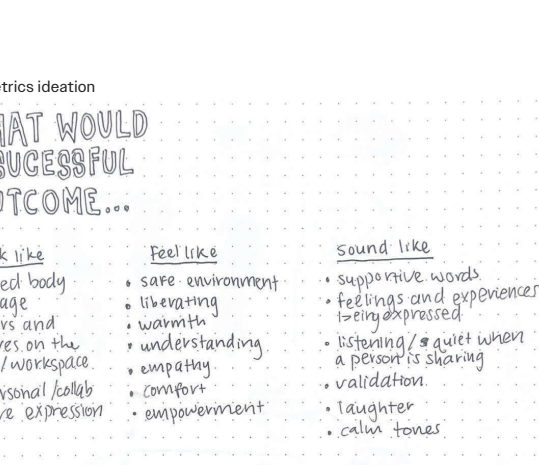 trics ideation
HAT WOULD
SUCESSFUL
UTCOME...
k like
ed body
age
rs and
ves on the
/workspace
rsonal /collab
ve expression
Feel like
• safe environment
• liberating
• warmth
• understanding
• empathy
• comfort
• empowerment
Sound like
• supportive words
• feelings and experiences
being expressed
• listening/ quiet when
a person is sharing
• validation
• laughter
• calm tones